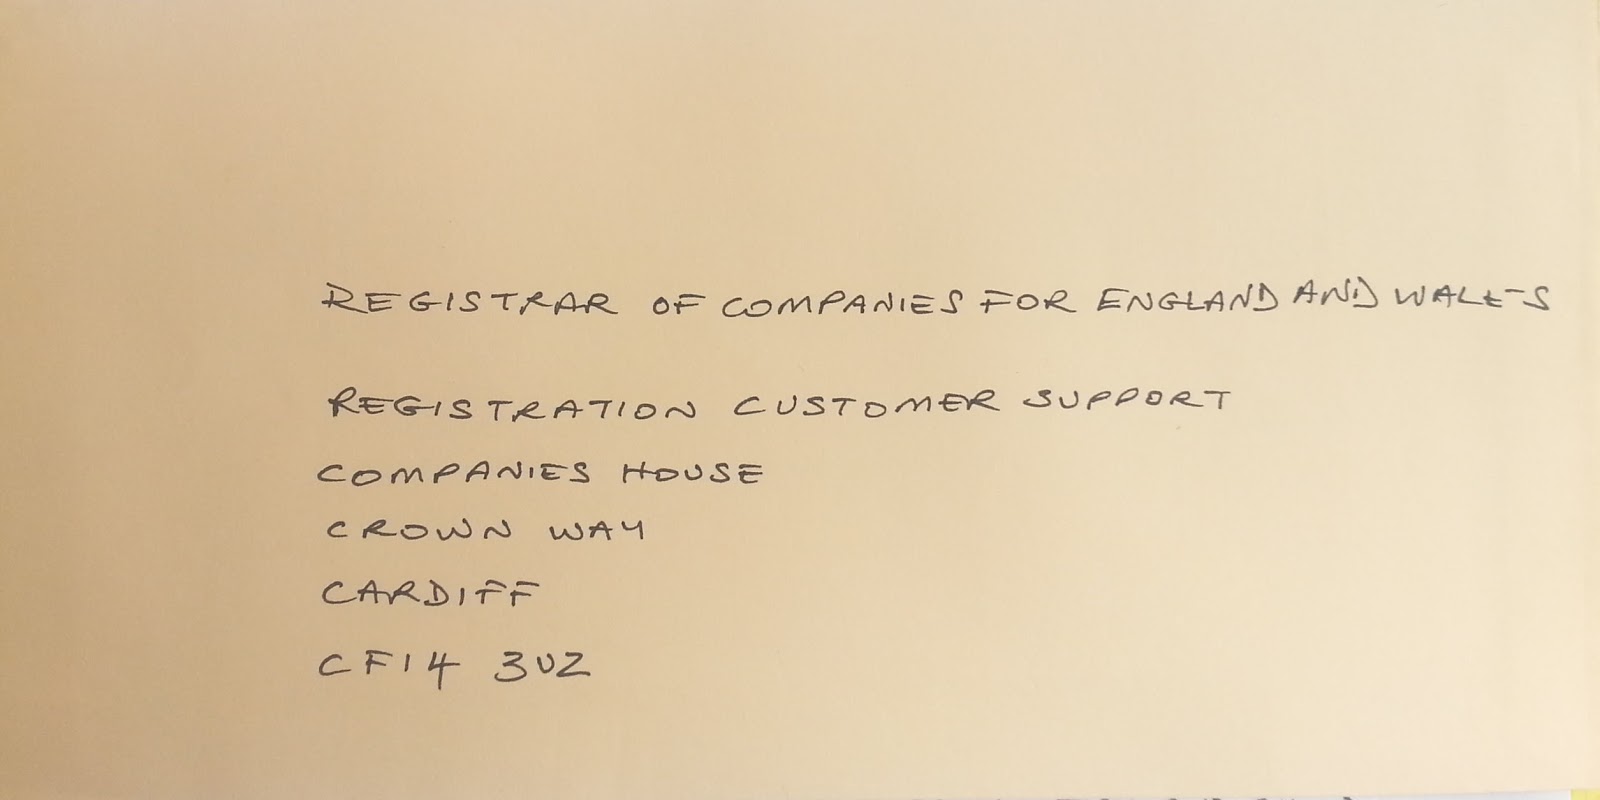 REGISTRAR OF COMPANIES FOR ENGLAND AND WALES
REGISTRATION CUSTOMER SUPPORT
COMPANIES HOUSE
CROWN WAY
CARDIFF
CF14 3UZ